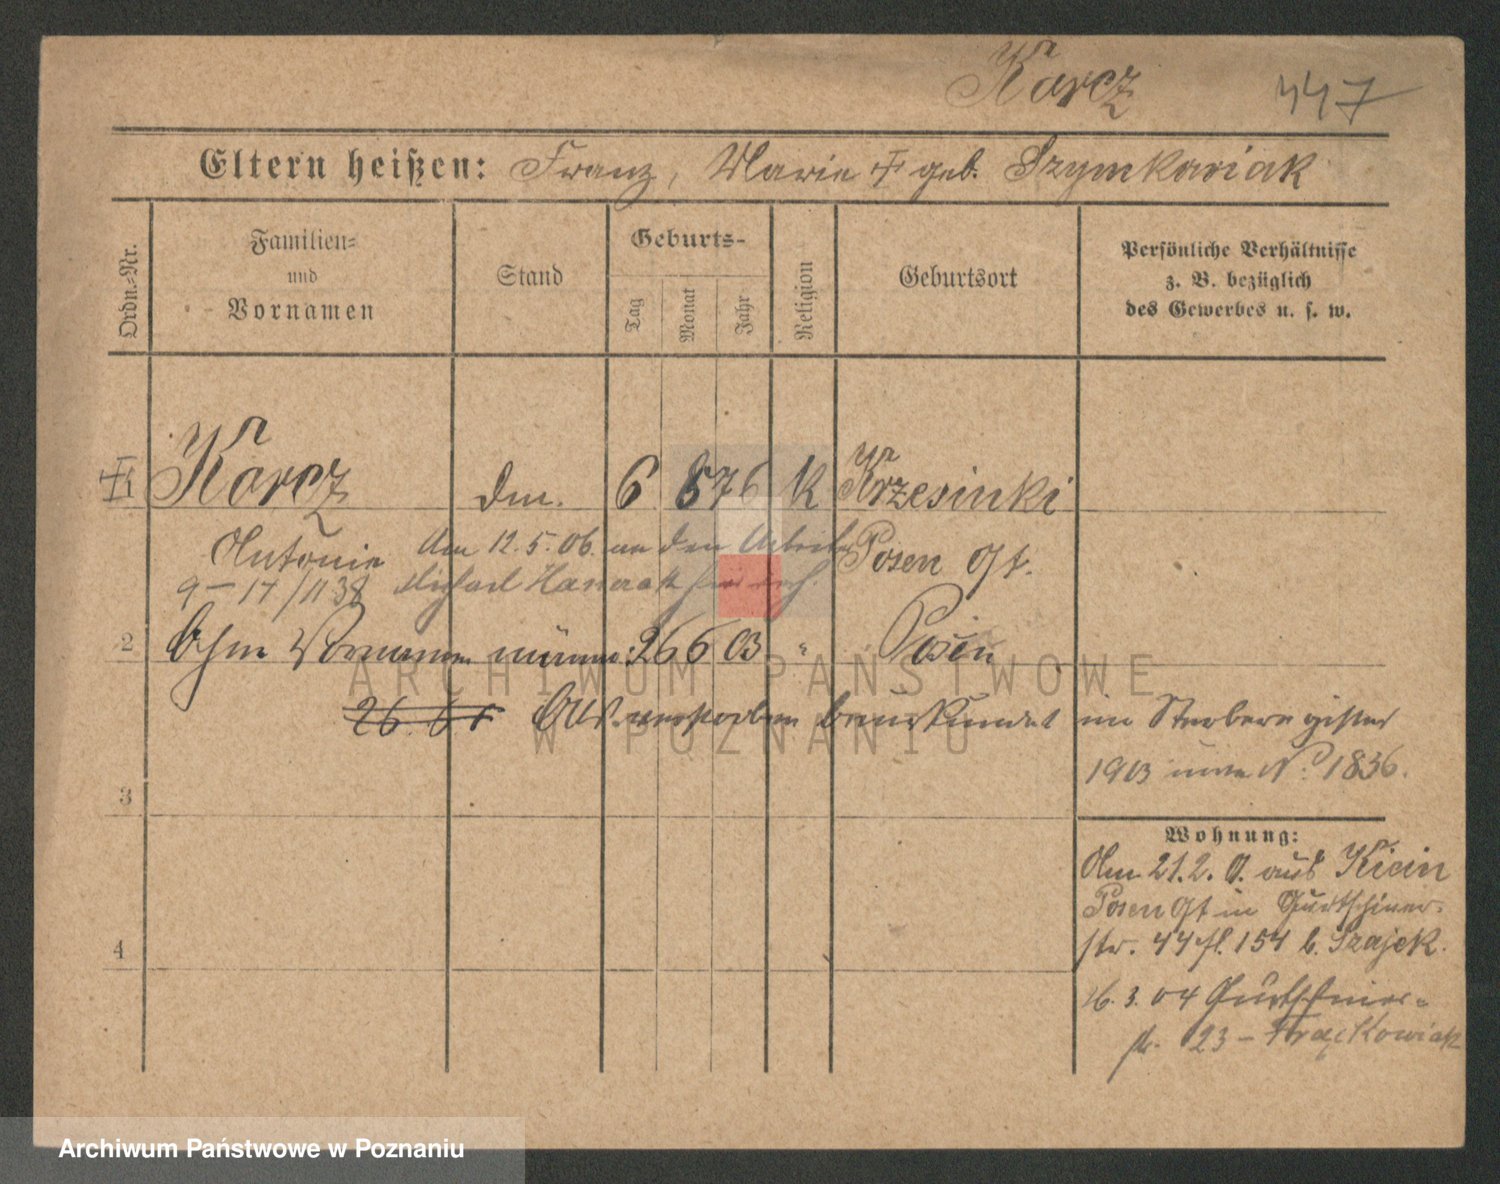 Karcz 447
Eltern heißen: Franz, Marie † geb. Szymkariak
Ordn.-Nr.
Familien-
und
Vornamen
Stand
Geburts-
Tag
Monat
Jahr
Religion
Geburtsort
Persönliche Verhältnisse
z. B. bezüglich
des Gewerbes u. s. w.
Karcz dm. 6 8 76 K Krzesinki
Antonie Am 12.5.06. an den Arbeiter Posen Ost.
9-17/1138 Michael
2 Ohne Vornamen 26 6 03 " Posen
26. verstorben beurkundet im Sterberegister
1903 unter No: 1836.
3
Wohnung:
Am 21.2. aus Kicin
Posen Ost in Gurtschiner-
str. 44 154 b. Szajek.
4
26.3.04 Gurtschiner-
str. 23 - Frąckowiak
ARCHIWUM PAŃSTWOWE
W POZNANIU
Archiwum Państwowe w Poznaniu